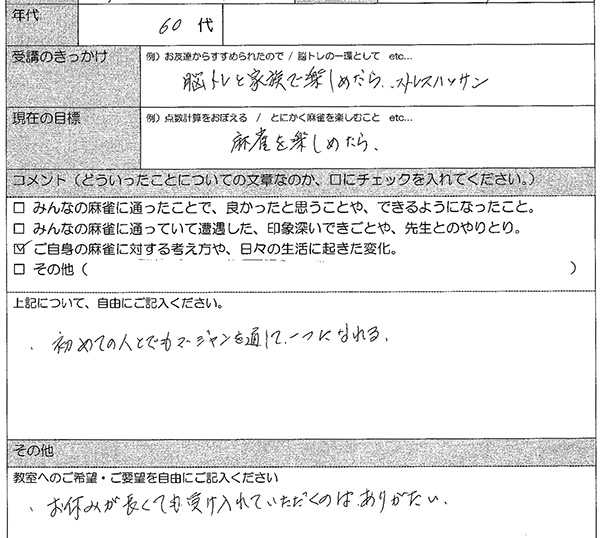 年代
60 代
受講のきっかけ
例）お友達からすすめられたので / 脳トレの一環として etc...
脳トレと家族で楽しめたら、ストレスハッサン
現在の目標
例）点数計算をおぼえる / とにかく麻雀を楽しむこと etc...
麻雀を楽しめたら、
コメント（どういったことについての文章なのか、口にチェックを入れてください。）
□ みんなの麻雀に通ったことで、良かったと思うことや、できるようになったこと。
□ みんなの麻雀に通っていて遭遇した、印象深いできごとや、先生とのやりとり。
☑ ご自身の麻雀に対する考え方や、日々の生活に起きた変化。
□ その他（ ）
上記について、自由にご記入ください。
、初めての人とでもマージャンを通して、一つになれる、
その他
教室へのご希望・ご要望を自由にご記入ください
、お休みが長くても受け入れていただくのはありがたい、